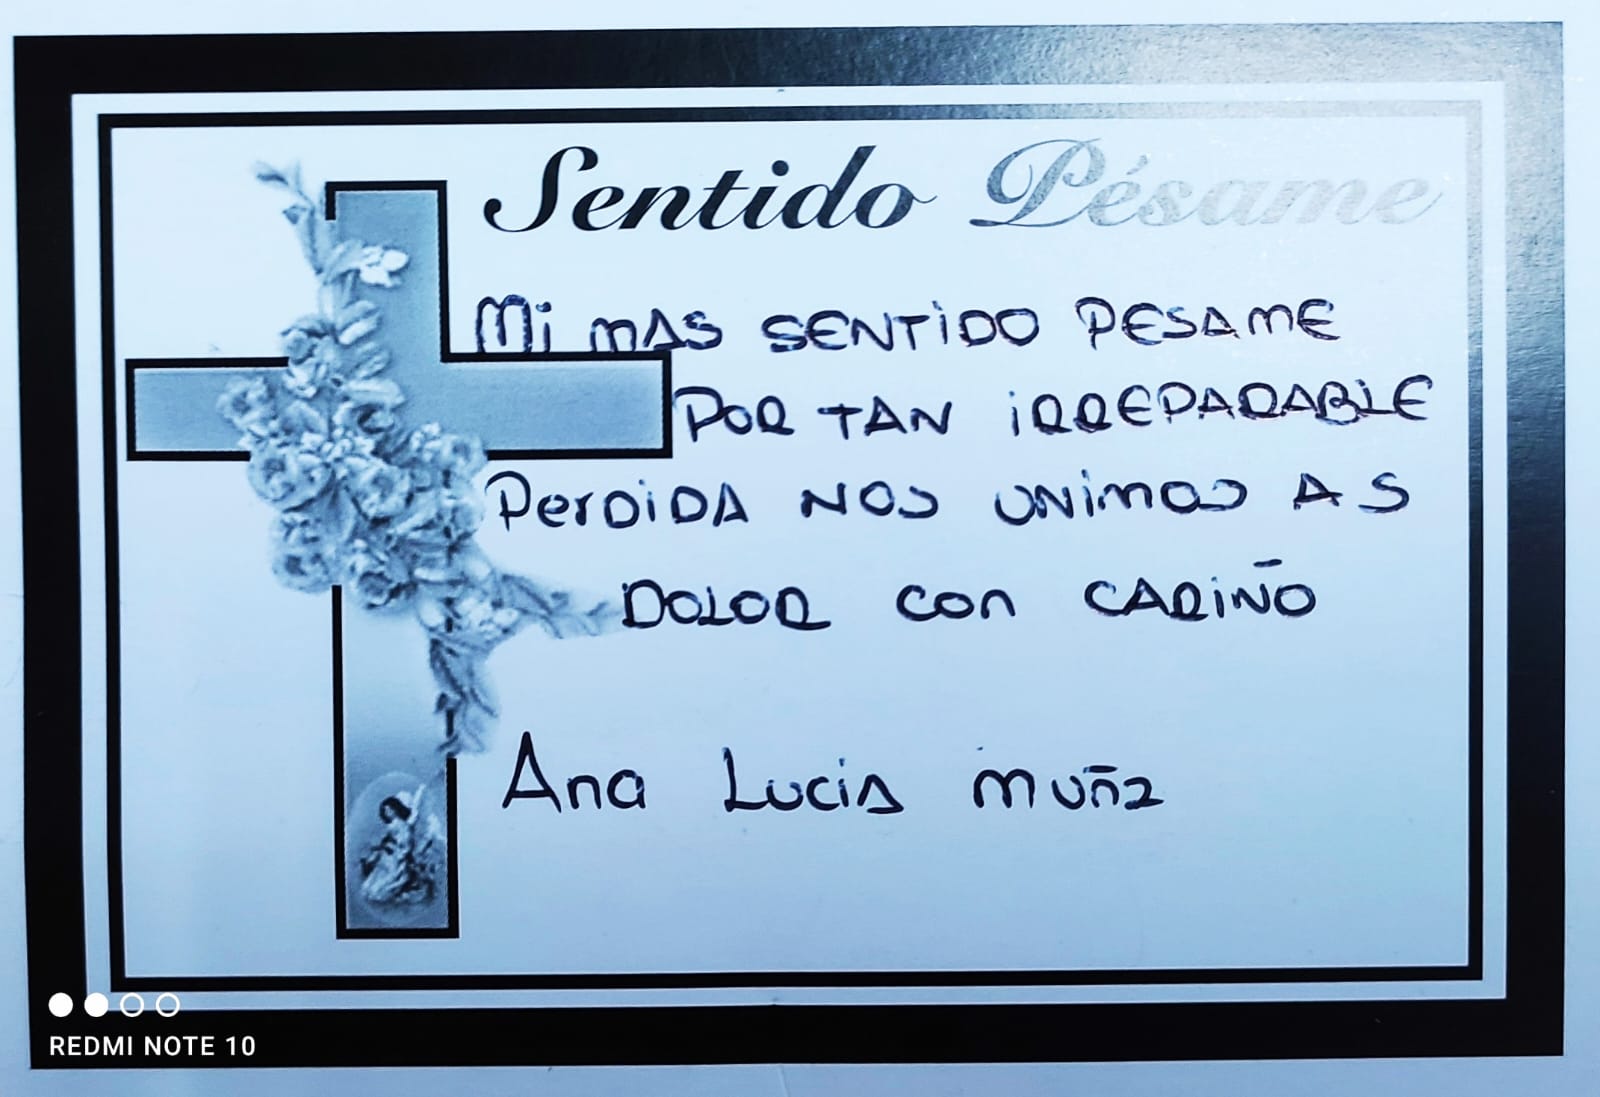 Sentido Pésame
Mi MAS SENTIDO PESAME
POR TAN IRREPARABLE
PerDiDA NOS UNIMOS A S
DOLOR con CARIÑO
Ana Lucia muñz
REDMI NOTE 10